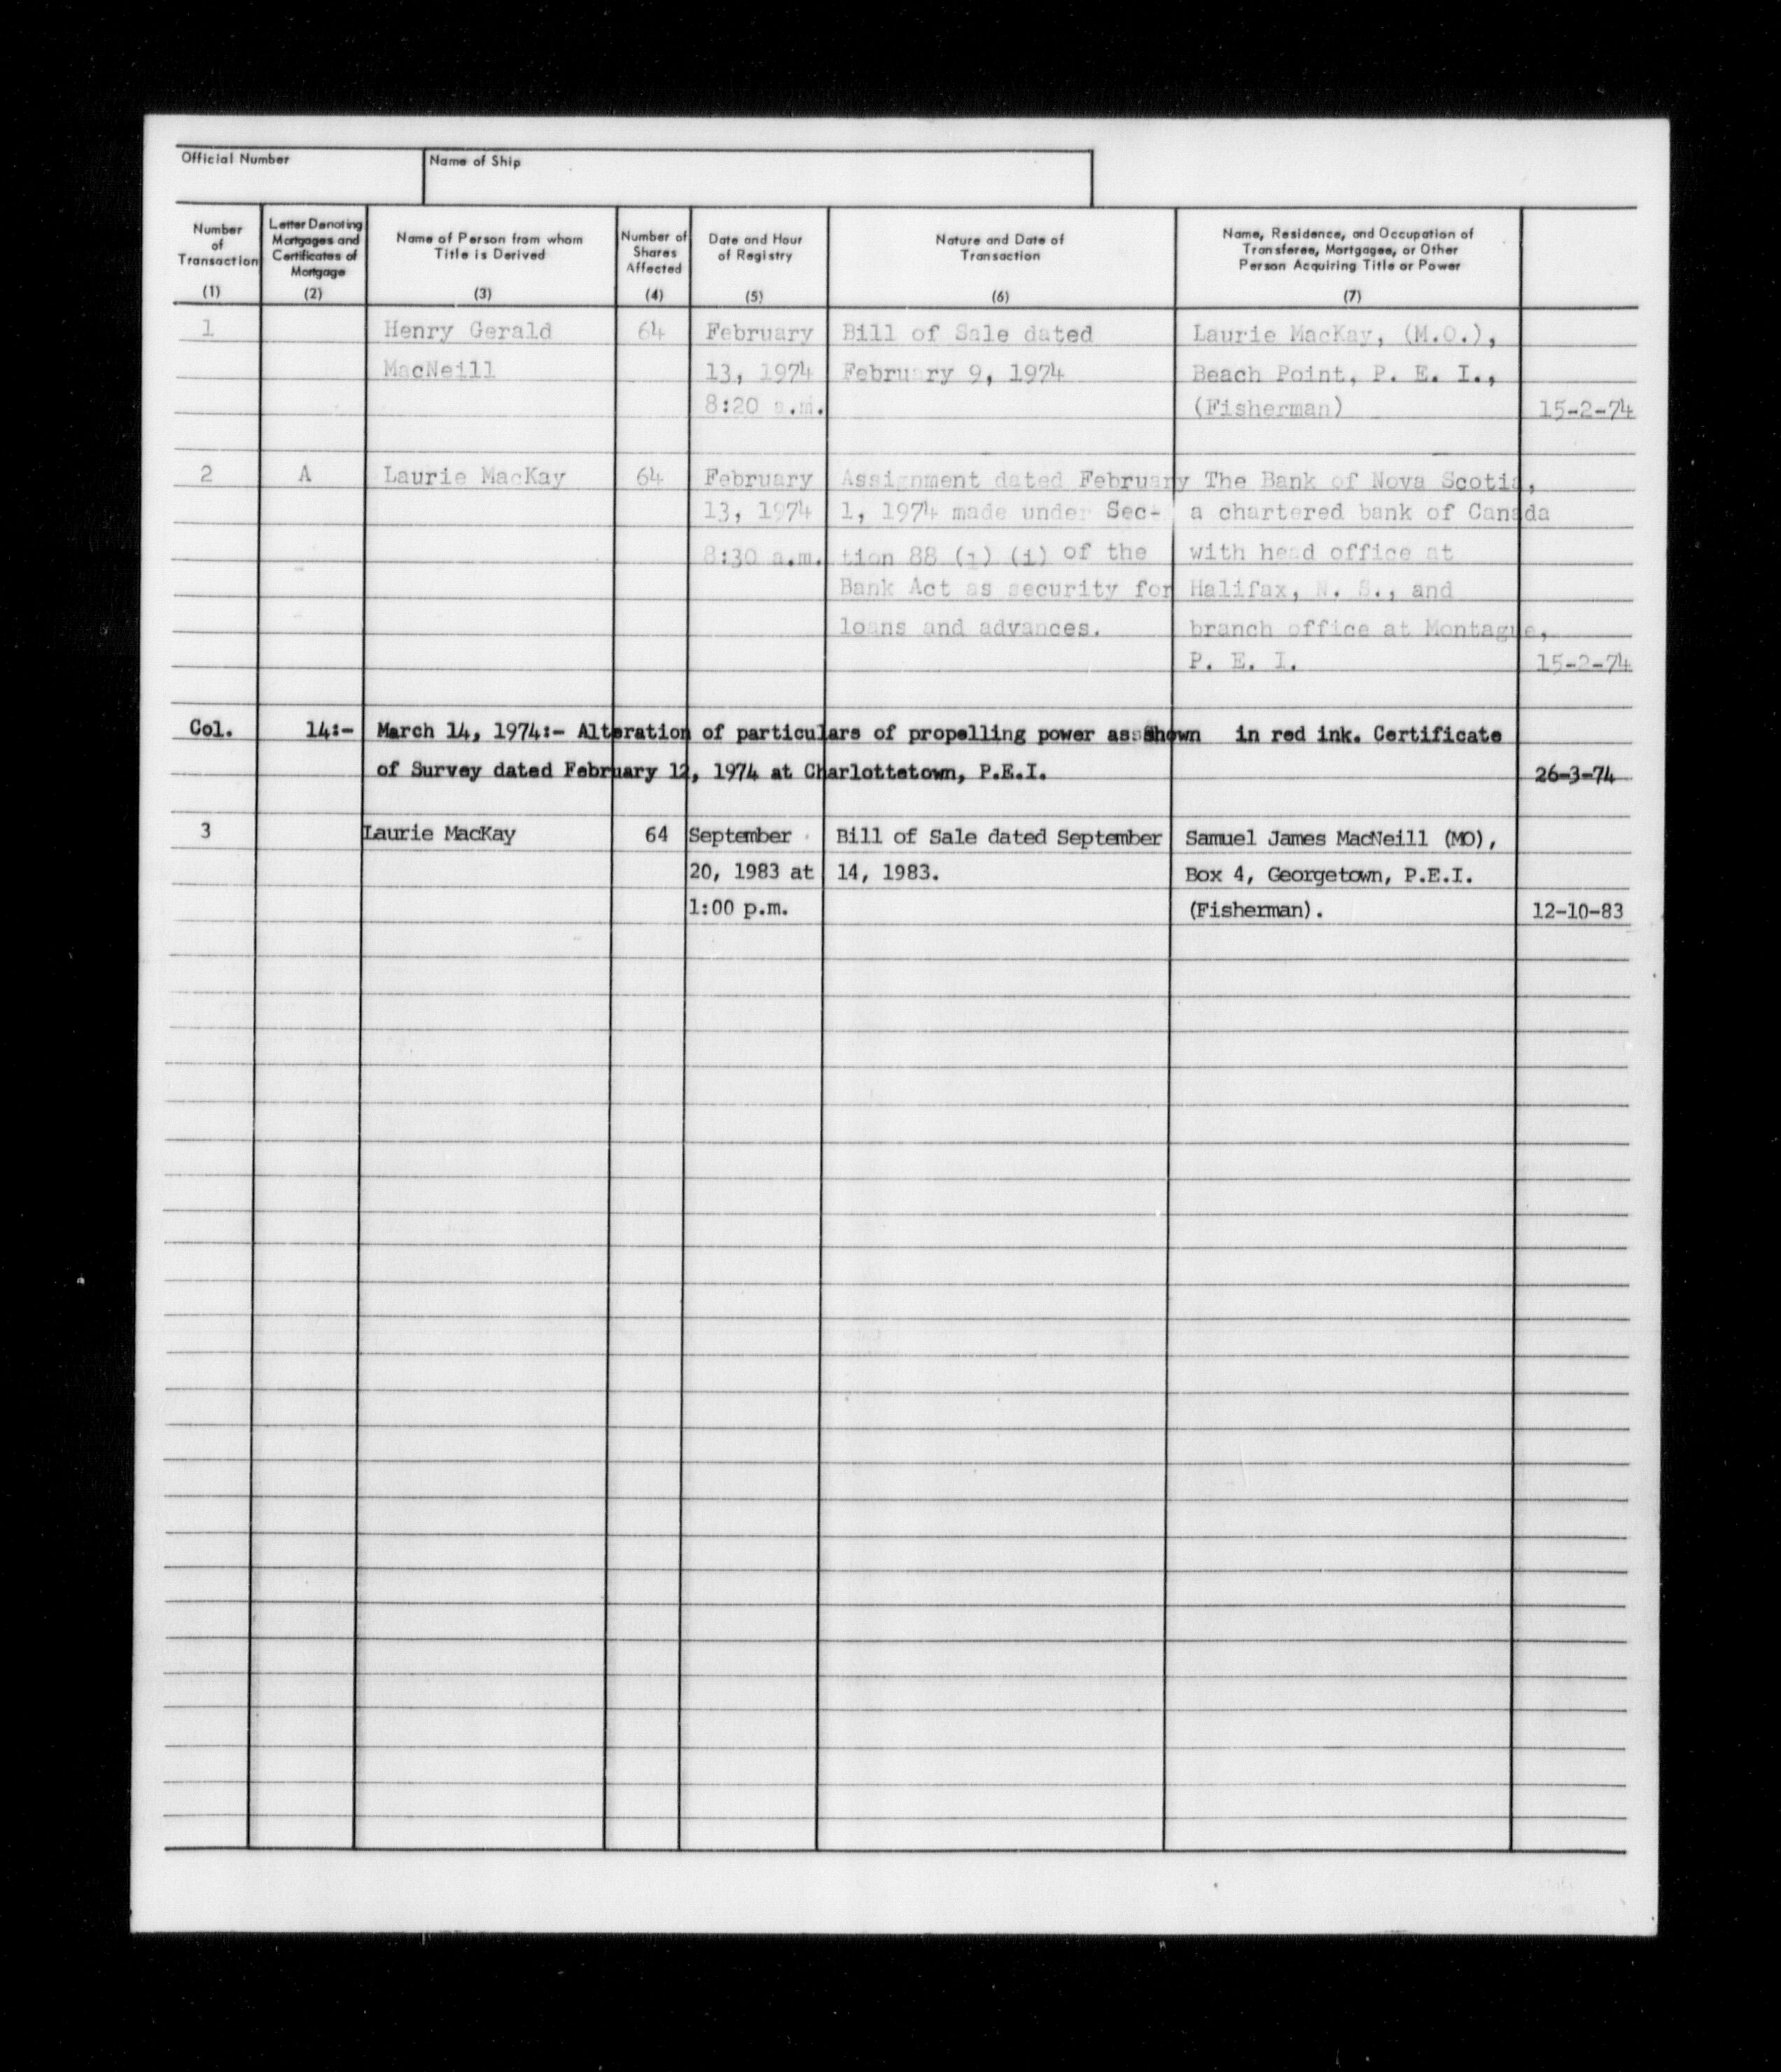 Official Number
Name of Ship
Number of Transaction (1)
Letter Denoting Mortgages and Certificates of Mortgage (2)
Name of Person from whom Title is Derived (3)
Number of Shares Affected (4)
Date and Hour of Registry (5)
Nature and Date of Transaction (6)
Name, Residence, and Occupation of Transferee, Mortgagee, or Other Person Acquiring Title or Power (7)
1 Henry Gerald 64 February Bill of Sale dated Laurie MacKay, (M.O.),
MacNeill 13, 1974 February 9, 1974 Beach Point, P. E. I.,
8:20 a.m. (Fisherman) 15-2-74
2 A Laurie MacKay 64 February Assignment dated February The Bank of Nova Scotia,
13, 1974 1, 1974 made under Sec- a chartered bank of Canada
8:30 a.m. tion 88 (1) (i) of the with head office at
Bank Act as security for Halifax, N. S., and
loans and advances. branch office at Montague,
P. E. I. 15-2-74
Col. 14:- March 14, 1974:- Alteration of particulars of propelling power as shown in red ink. Certificate
of Survey dated February 12, 1974 at Charlottetown, P.E.I. 26-3-74
3 Laurie MacKay 64 September Bill of Sale dated September Samuel James MacNeill (MO),
20, 1983 at 14, 1983. Box 4, Georgetown, P.E.I.
1:00 p.m. (Fisherman). 12-10-83